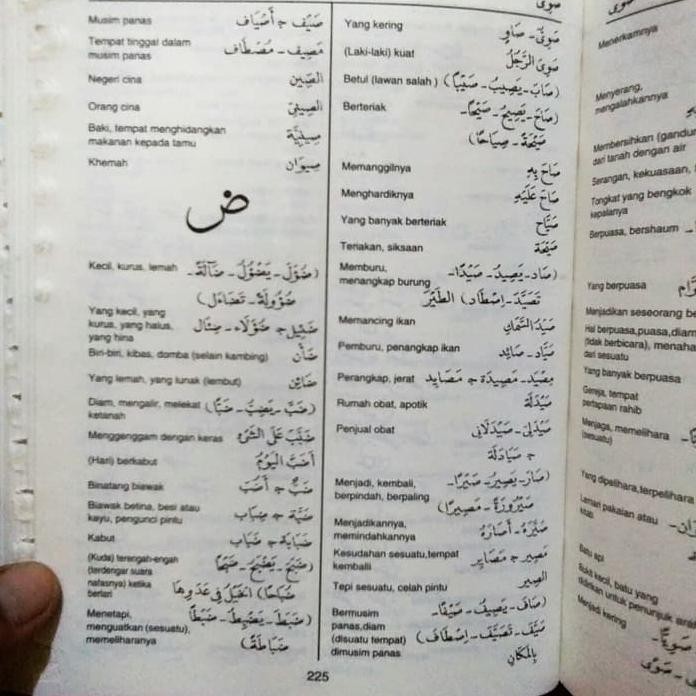 صوى
Yang kering صَوِيٌّ - صَاوٍ
(Laki-laki) kuat صَوِيَ الرَّجُلُ
Betul (lawan salah) (صَابَ - يَصِيبُ - صَيْبًا)
Berteriak (صَاحَ - يَصِيحُ - صَيْحًا -
صَيْحَةً - صِيَاحًا)
Memanggilnya صَاحَ بِهِ
Menghardiknya صَاحَ عَلَيْهِ
Yang banyak berteriak صَيَّاح
Teriakan, siksaan صَيْحَة
Memburu, (صَاد - يَصِيد - صَيْدًا -
menangkap burung تَصَيَّدَ - اِصْطَاد) الطَّيْرَ
Memancing ikan صَيْدُ السَّمَكِ
Pemburu, penangkap ikan صَيَّاد - صَائِد
Perangkap, jerat مِصْيَد - مَصِيدَة ج مَصَايِد
Rumah obat, apotik صَيْدَلَة
Penjual obat صَيْدَلِيّ - صَيْدَلَانِي
ج صَيَادِلَة
Menjadi, kembali, (صَارَ - يَصِير - صَيْرًا -
berpindah, berpaling صَيْرُورَةً - مَصِيرًا)
Menjadikannya, صَيَّرَهُ - أَصَارَهُ
memindahkannya
Kesudahan sesuatu,tempat مَصِير ج مَصَايِر
kembalii
Tepi sesuatu, celah pintu الصِّير
Bermusim (صَافَ - يَصِيف - صَيْفًا -
panas,diam صَيَّفَ - تَصَيَّفَ - اِصْطَافَ)
(disuatu tempat) بِالْمَكَانِ
dimusim panas
Musim panas صَيْف ج أَصْيَاف
Tempat tinggal dalam مَصِيف - مُصْطَاف
musim panas
Negeri cina الصِّين
Orang cina الصِّينِيّ
Baki, tempat menghidangkan صِينِيَّة
makanan kepada tamu
Khemah صِيوَان
ض
Kecil, kurus, lemah (ضَؤُلَ - يَضْؤُلُ - ضَآلَةً -
ضُؤُولَةً - تَضَاءَلَ)
Yang kecil, yang ضَئِيل ج ضُؤَلَاء - ضِئَال
kurus, yang halus,
yang hina
Biri-biri, kibas, domba (selain kambing) ضَأْن
Yang lemah, yang lunak (lembut) ضَائِن
Diam, mengalir, melekat (ضَبَّ - يَضِبُّ - ضَبًّا)
ketanah
Menggenggam dengan keras ضَبَّبَ عَلَى الشَّيْءِ
(Hari) berkabut أَضَبَّ الْيَوْمُ
Binatang biawak ضَبّ ج أَضُبّ
Biawak betina, besi atau ضَبَّة ج ضِبَاب
kayu, pengunci pintu
Kabut ضَبَابَة ج ضَبَاب
(Kuda) terengah-engah (ضَبَحَ - يَضْبَحُ - ضَبْحًا
(terdengar suara ضُبَاحًا) الْخَيْلُ فِي عَدْوِهَا
nafasnya) ketika
berlari
Menetapi, (ضَبَطَ - يَضْبِطُ - ضَبْطًا
menguatkan (sesuatu), ضَبَاطَةً)
memeliharanya
225
Menerkamnya
Menyerang,
mengalahkannya
dari tanah dengan air
Tongkat yang bengkok
kapalanya
Berpuasa, bershaum
Yang berpuasa
(tidak berbicara),
dari sesuatu
Yang banyak berpuasa
Gereja, tempat
pertapaan rahib
Menjaga, memelihara
(sesuatu)
Yang dipelihara,terpelihara
Lemari pakaian atau
kitab
Batu api
Bukit kecil, batu yang
Menjadi kering